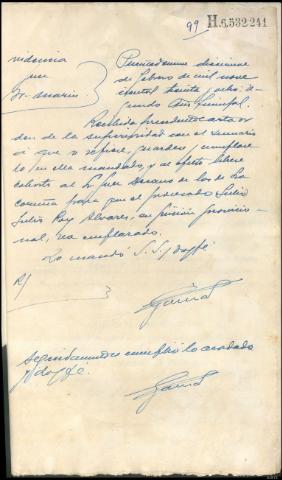 99 H.6,532,241
Providencia
Juez
Sr. Marin
Puentedeume diecinueve
de Febrero de mil nove
cientos treinta y ocho. Se-
gundo Año Triunfal.
Recibida precedente carta or
den de la superioridad con el sumario
a que se refiere, guardese y cumplase
lo en ella mandado, y al efecto librese
exhorto al Sr Juez Decano de los de La
Coruña para que el procesado Julio
Rey Alvarez, en prisión provisio-
nal, sea emplazado.
Lo mandó S.S. y doy fé
R/
Seguidamente se cumplió lo acordado
y doy fé.